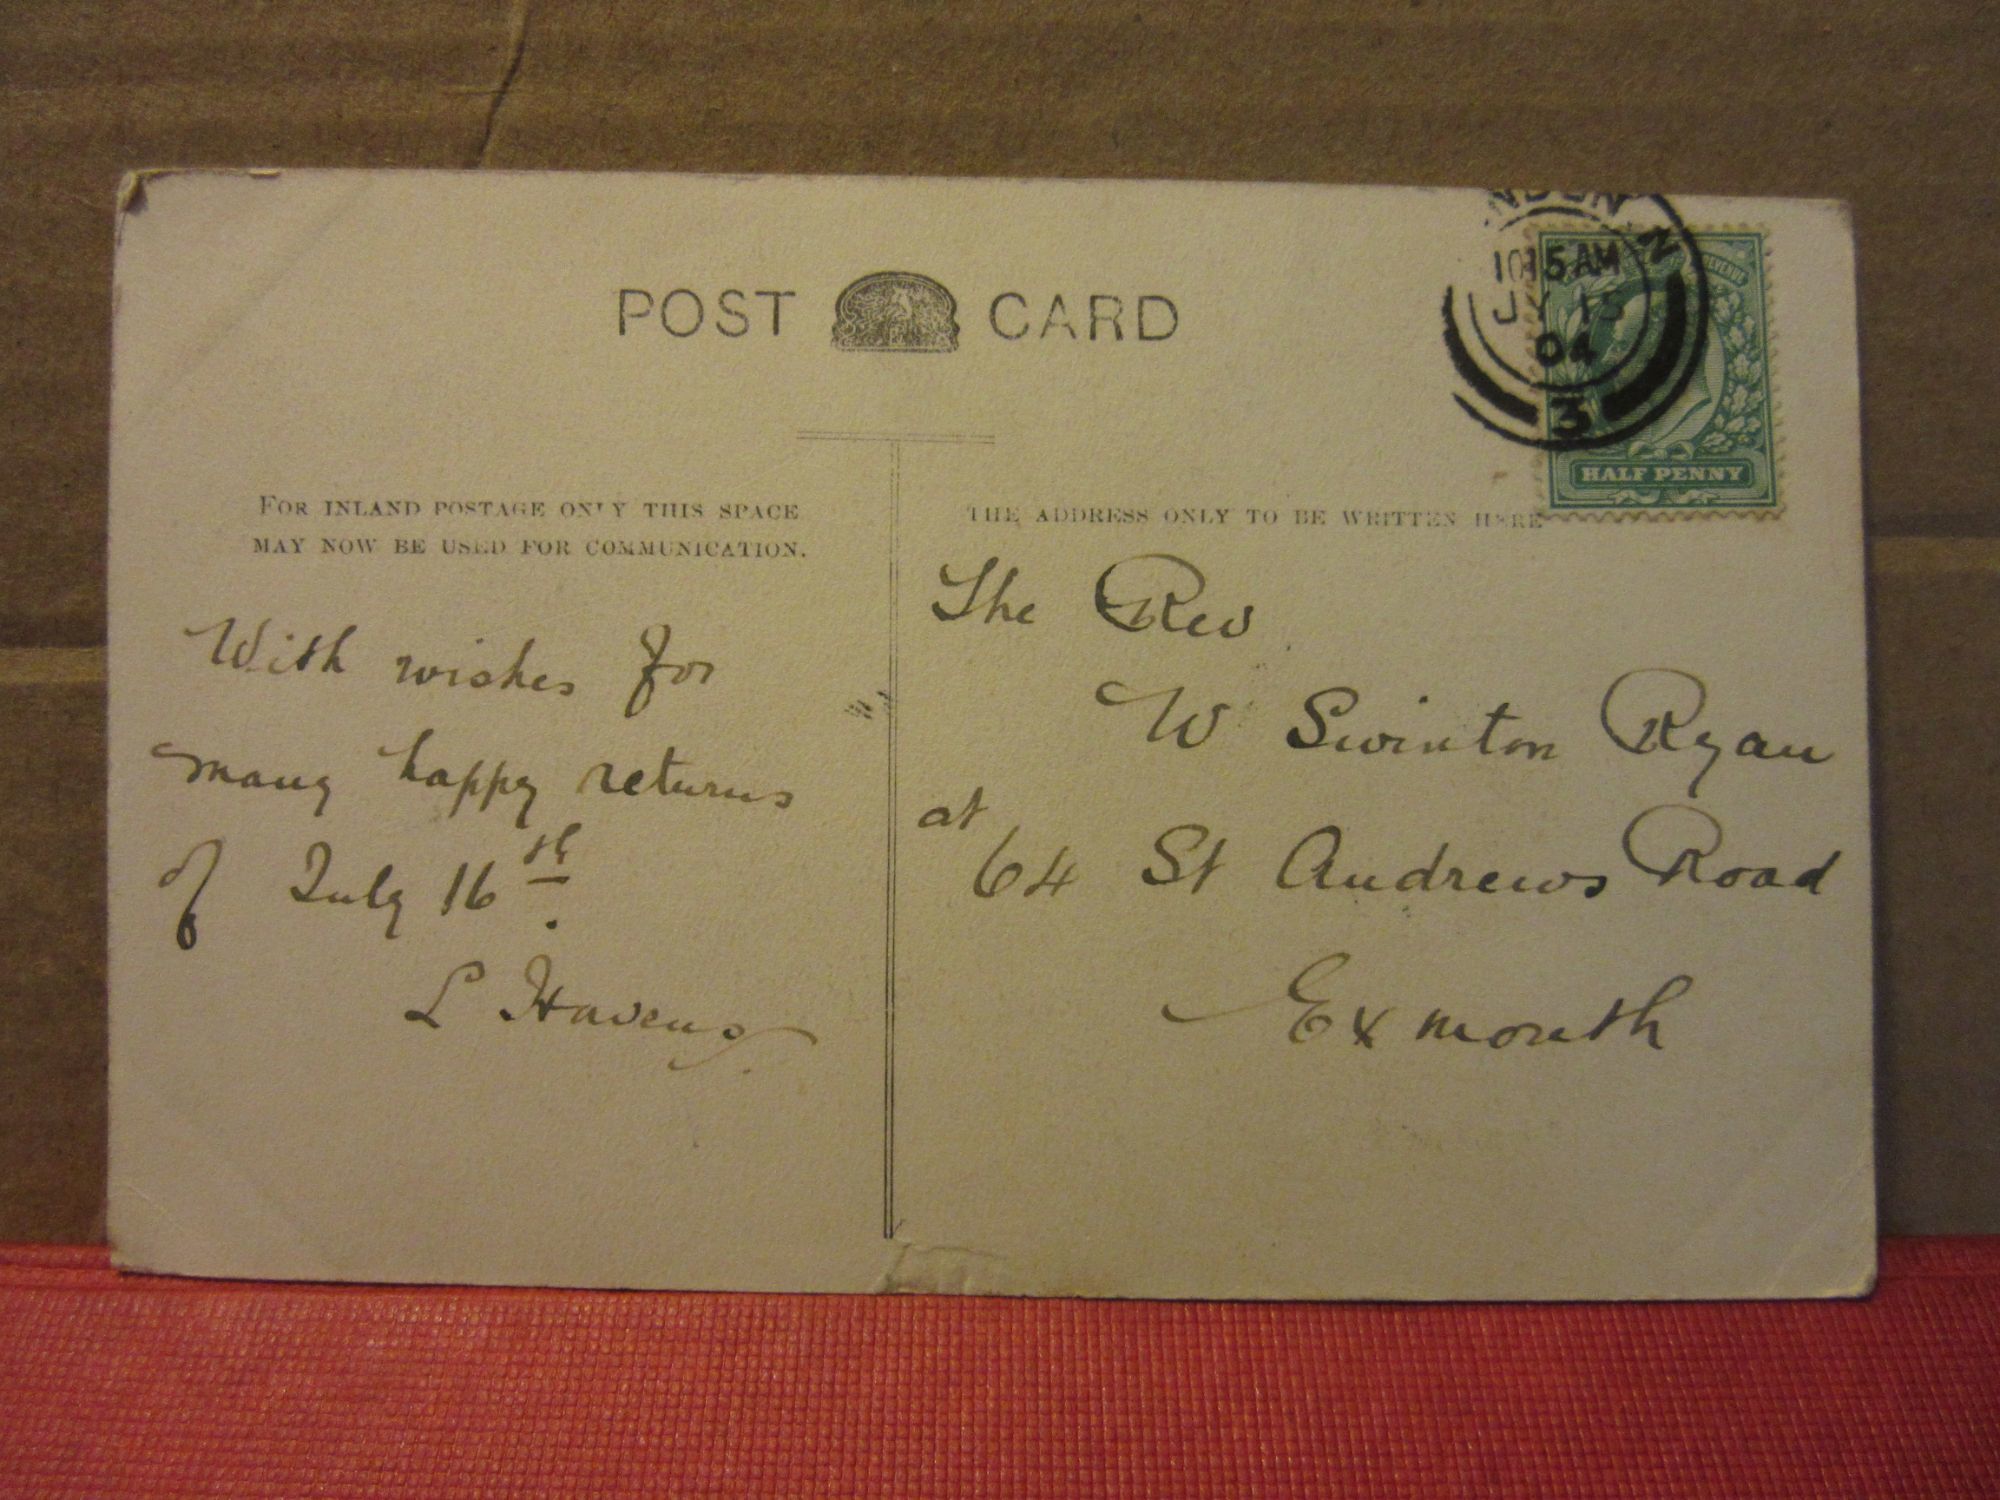 POST CARD
10 15 AM
JY 15
04
3
HALF PENNY
FOR INLAND POSTAGE ONLY THIS SPACE
MAY NOW BE USED FOR COMMUNICATION.
THE ADDRESS ONLY TO BE WRITTEN HERE
With wishes for
many happy returns
of July 16th.
L Havens
The Rev
W Swinton Ryan
at
64 St Andrews Road
Exmouth